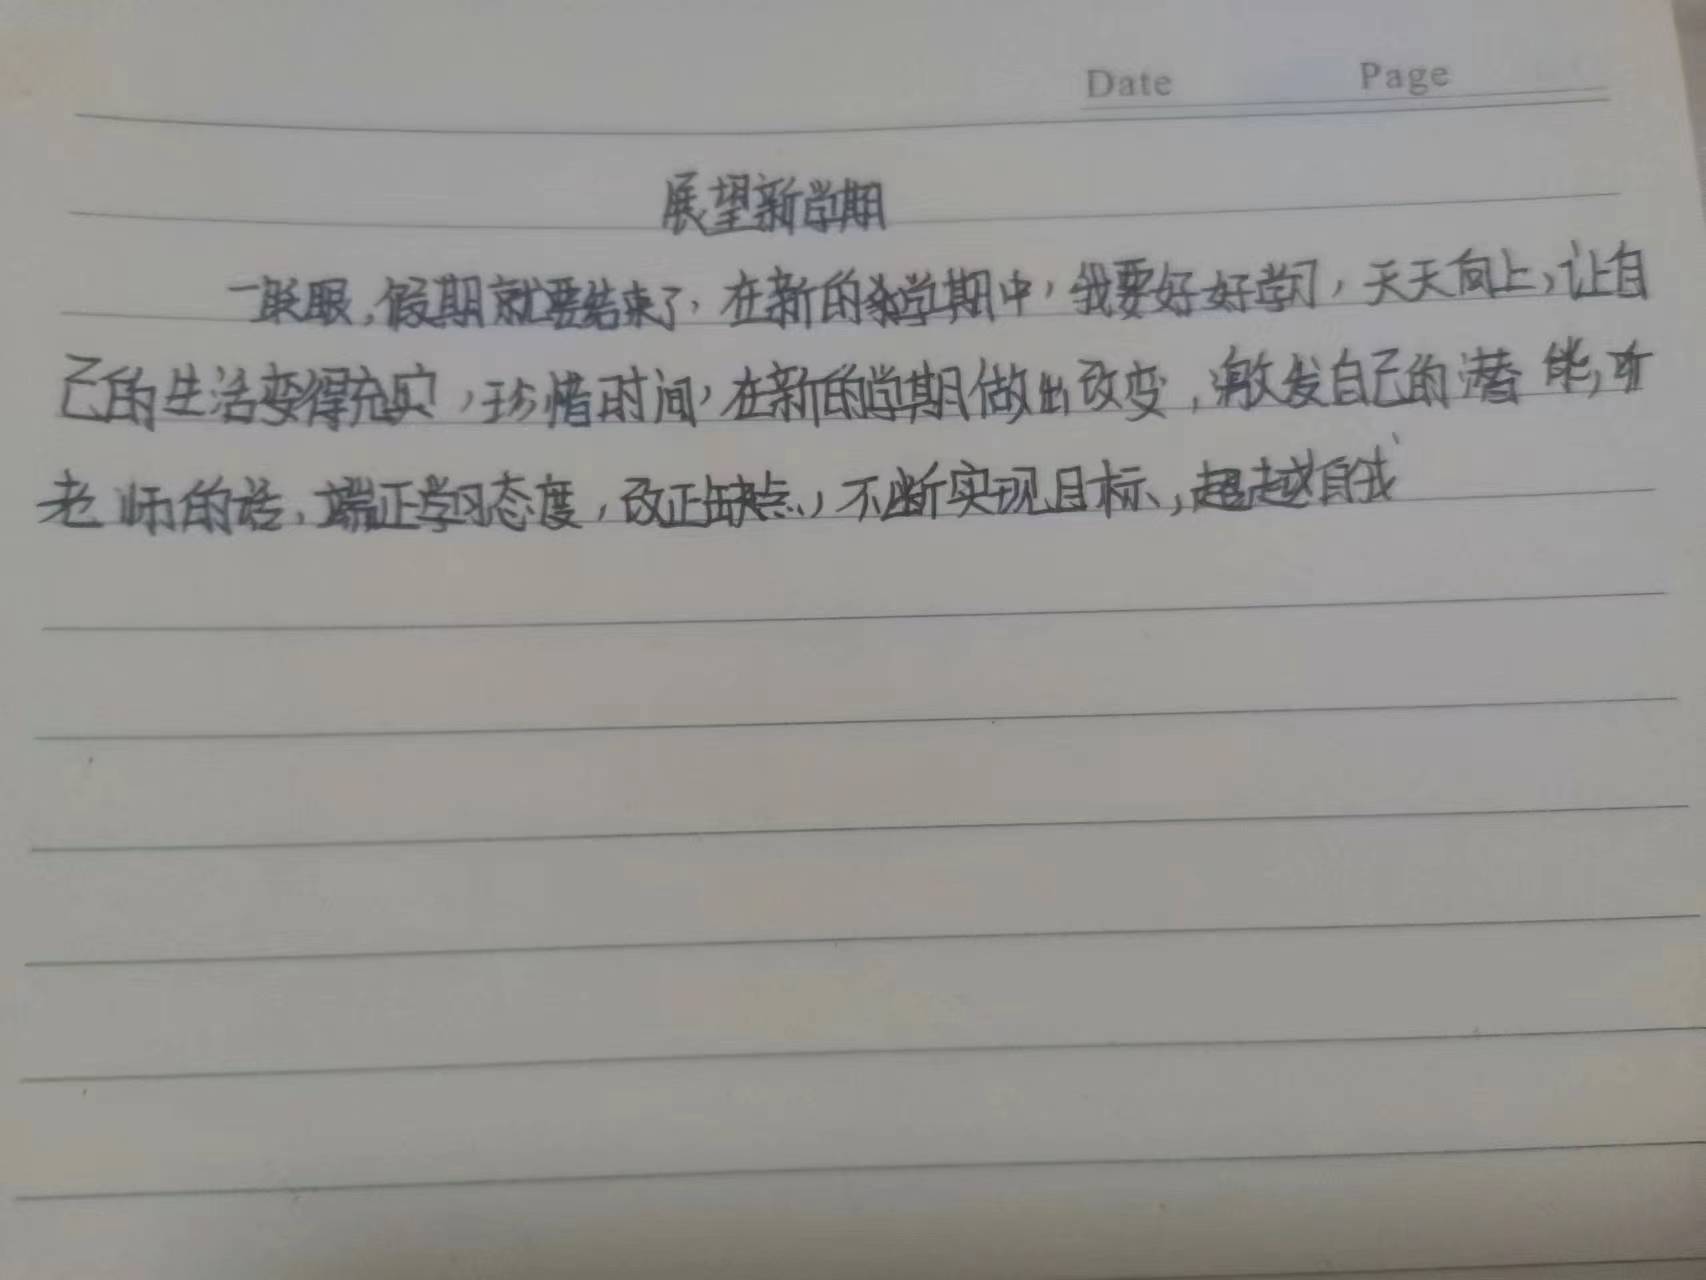 Date Page
展望新学期
一眨眼,假期就要结束了,在新的学期中,我要好好学习,天天向上,让自
己的生活变得充实,珍惜时间,在新的学期做出改变,激发自己的潜能,听
老师的话,端正学习态度,改正缺点,不断实现目标,超越自我